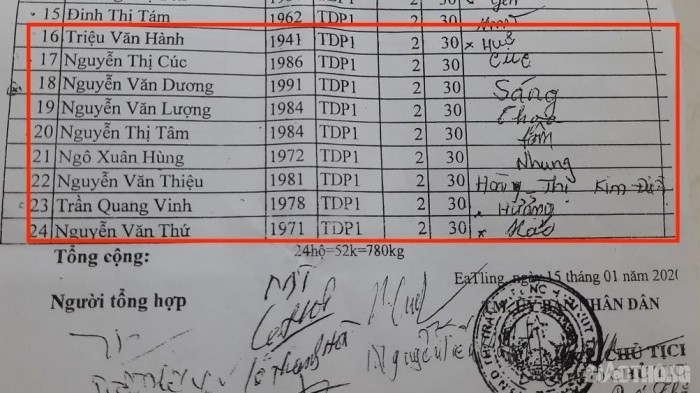 15 Đinh Thị Tám 1962 TDP1 2 30
16 Triệu Văn Hành 1941 TDP1 2 30 x Huệ
17 Nguyễn Thị Cúc 1986 TDP1 2 30 Cúc
18 Nguyễn Văn Dương 1991 TDP1 2 30 Sáng
19 Nguyễn Văn Lượng 1984 TDP1 2 30
20 Nguyễn Thị Tâm 1984 TDP1 2 30 Tâm
21 Ngô Xuân Hùng 1972 TDP1 2 30 Nhung
22 Nguyễn Văn Thiệu 1981 TDP1 2 30 Thị Kim
23 Trần Quang Vinh 1978 TDP1 2 30 x Hường
24 Nguyễn Văn Thứ 1971 TDP1 2 30 x
Tổng cộng: 24hộ=52k=780kg
EaTling, ngày 15 tháng 01 năm 2020
Người tổng hợp
TM ỦY BAN NHÂN DÂN
CHỦ TỊCH